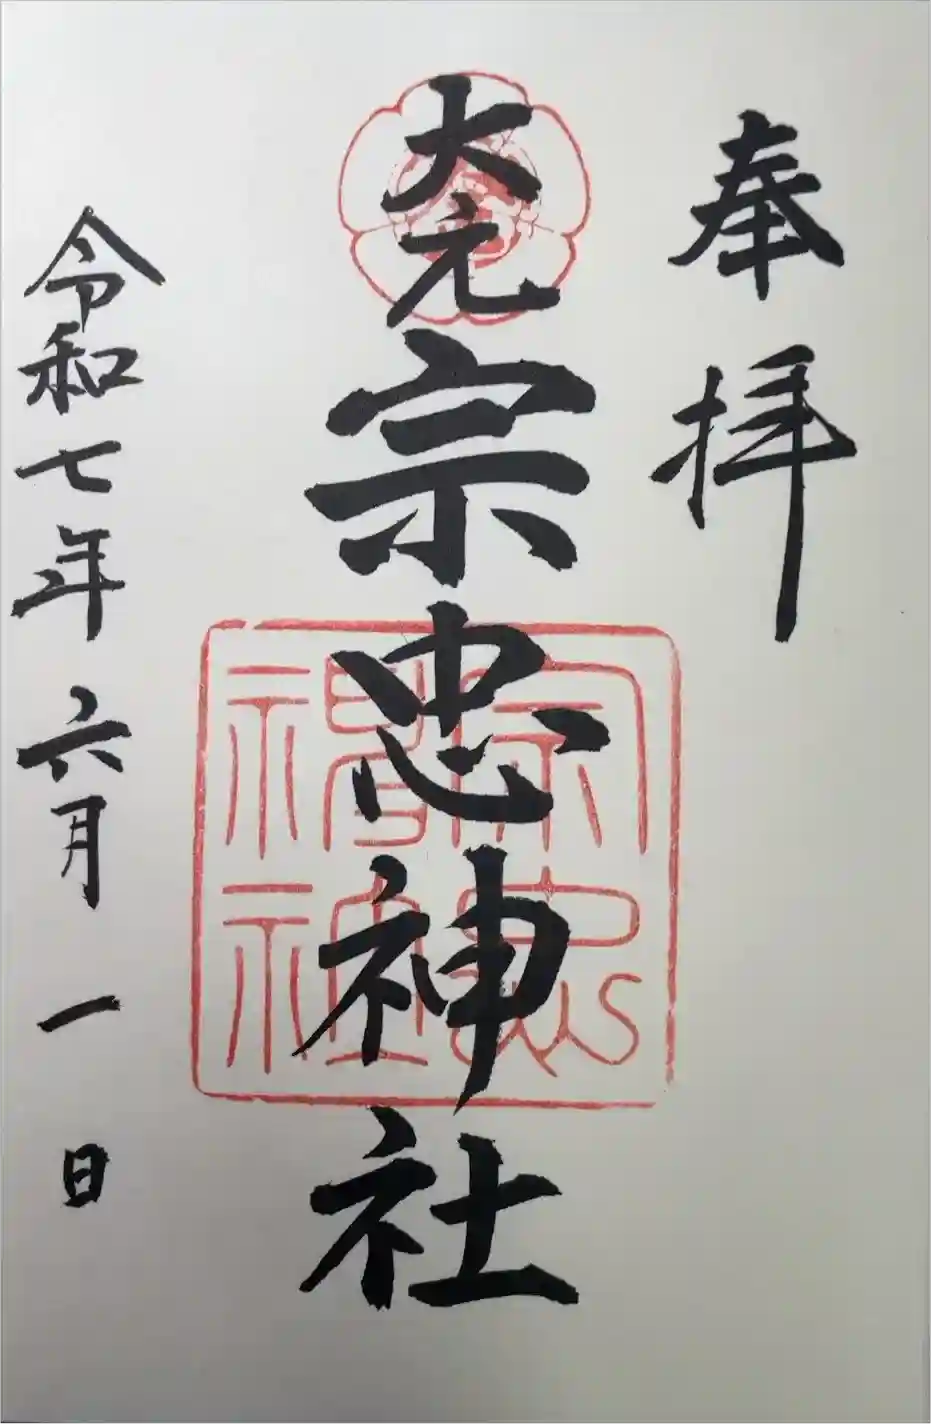 奉拝
大元
宗忠神社
宗忠
神社
令和七年六月一日